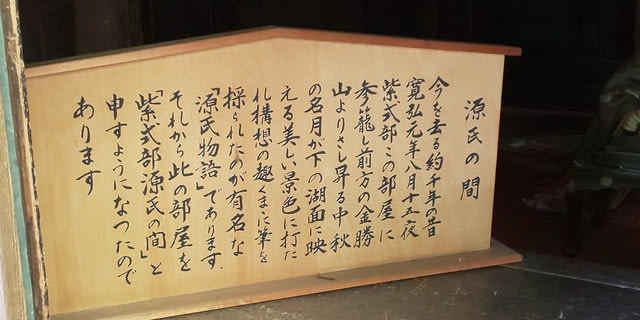 源氏の間
今を去る約千年の昔
寛弘元年八月十五夜
紫式部この部屋に
参籠し前方の金勝
山よりさし昇る中秋
の名月が下の湖面に映
える美しい景色に打た
れ構想の趣くまゝに筆を
採られたのが有名な
「源氏物語」であります.
それから此の部屋を
「紫式部源氏の間」と
申すようになつたので
あります